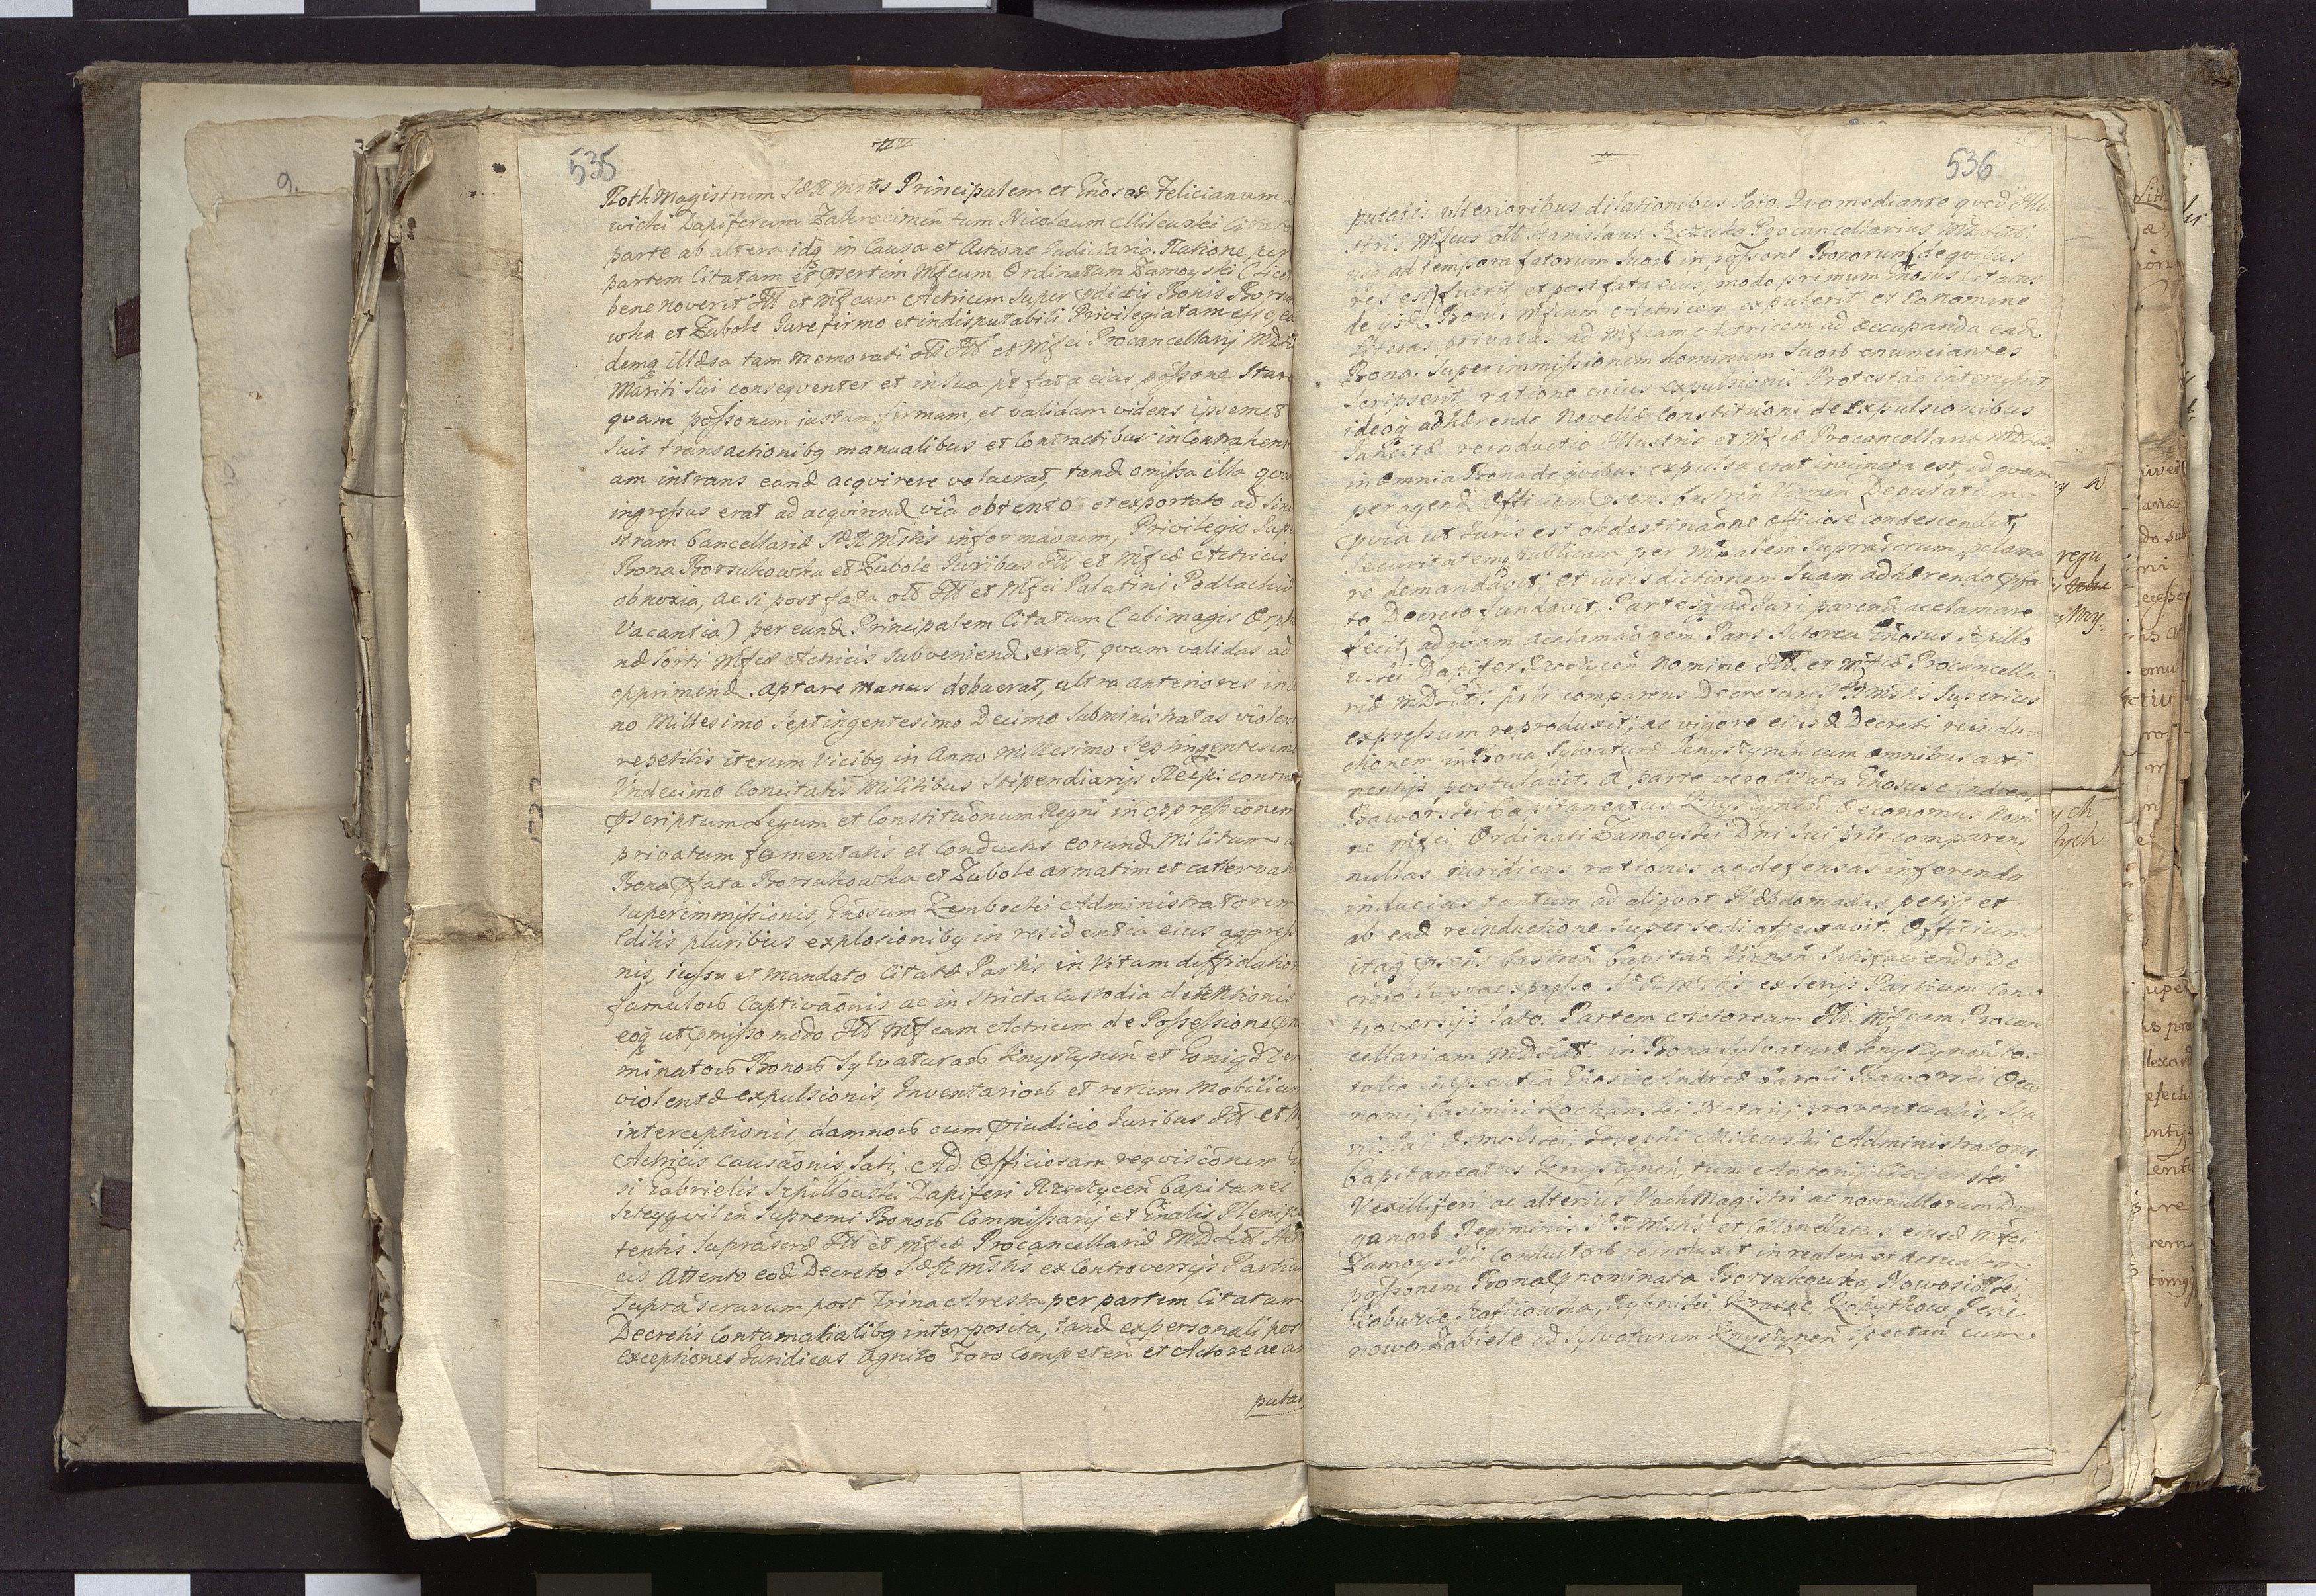 535
RothMagistrum SæRMttis Principalem et Gnosos Felicianum
wicki Dapiferum Zakrocimen tum Nicolaum Milewski Citat
parte ab altera idq in Causa et Actione Judiciaria. Ratione, per
partem Citatam et psertim Mfcum Ordinatum Zamoyski (licet
bene noverit Ill et Mfcam Actricem super pdictis Bonis Borsu
wka et Zubole Jure firmo et indisputabili Privilegiatam esse, ea
demq illæsa tam memorati olt Ill et Mfci Procancellarij MDLit
Mariti sui consequenter et in sua pt fata eius, possone Stare
quam possonem iustam, firmam, et validam videns ipsemet
suis transactionibq manualibus et Contractibus in Contrahent
am intrans eand acqvirere voluerat, tand omissa illa qva
ingressus erat ad acqvirend via obtento et exportato ad Sini
stram Cancellariæ SæRMttis informaonem, Privilegio Supr
Bona Borsukowka et Zubole Juribus Ill et Mfcæ Actricis
obnoxia, ac si post fata olt Ill et Mfci Palatini Podlachiæ
Vacantia) per eund Principalem Citatum (ubi magis Orph
næ Sorti Mfcæ Actricis subveniend erat, quam validas ad
opprimend. aptare manus debuerat, ultra anteriores in
no Millesimo Septingentesimo Decimo subministratas violent
repetitis iterum vicibq in Anno Millesimo Septingentesimo
Undecimo Concitatis Militibus Stipendiarijs Reipi: contra
pscriptum Legum et Constitutionum Regni in oppressionem
privatam fomentatis et Conductis eorund Militum
Bona pfata Borsukowka et Zubole armatim et catervati
superimmissionis, Gnosum Zembocki Administratorem
Editis pluribus explosionibq in residentia eius aggress
nis, iussu et mandato Citatæ Partis in Vitam diffidation
famulorb Captivaonis ac in stricta custodia detentionis
eoq ut pmisso modo Ill Mfcam Actricem de Possessione pno
minatorb Bonorb Sylvaturarb Knyszynen et Goniądzen
violentæ expulsionis, Inventariorb et rerum Mobilium
interceptionis, damnorb cum pjudicio Juribus Ill et M
Actricis causaonis, lati, Ad Officiosam reqvisiconem G
si Gabrielis Szpillowski Dapiferi Rzeczycen Capitanei
Steygvilen Supremi Bonorb Commissarij et Gnalis Plenip
tentis supraserd Ill et Mfcæ Procancellariæ MDLitt Actri
cis Attento eod Decreto SæRMttis ex Controversijs Partiu
supra scrarum post trina Arresta per partem Citatam
Decretis Contumatialibq interposita, tand ex personali post
exceptiones Juridicas Agnito Foro Competen et Actore ac a
putat
536
putatis ulterioribus dilationibus lato. Qvo mediante qvod Illu
stris Mfcus olt Stanislaus Szczuka Procancellarius MDLitt:
usq ad tempora fatorum suorb in possone Bonorum (de qvibus
res est) fuerit et post fata eius, modo primum Gnosus Citatus
de ijsd. Bonis Mfcam Actricem expulerit et Eo nomine
Literas privatas ad Mfcam Actricem ad occupanda ead
Bona Superimmissionem hominum suorb enunciantes
Scripserit ratione cuius expulsionis Protestao intercessit,
ideoq adhærendo Novellæ Constitutioni de Expulsionibus
sancitæ reinductio Illustris et Mfcæ Procancellariæ MDLitt
in omnia Bona de qvibus expulsa erat iniuncta est, ad qvam
peragend Officium psens Castren Vismen Deputatum
qvia ut Juris est ob destinaone officiose condescendit,
Securitatemq publicam per Mtrialem suprascrum, pclama
re demandavit, et iurisdictionem suam adhærendo pfa
to Decreto fundavit, Partesq ad Juri parend acclamare
fecit, ad qvam acclamaonem Pars Actorea Gnosus Szpillo
wski Dapifer Rzeczycen Nomine Ill. et Mfcæ Procancella
riæ MDLitt: prtr comparens Decretum SæRMttis superius
expressum reproduxit, ac vigore eiusd Decreti reindu-
ctionem in Bona Sylvaturæ Knyszynen cum omnibus atti
nentijs postulavit. A parte vero Citata Gnosus Andreas
Baworski Capitaneatus Knyszynen Oeconomus Nomi
ne Mfci Ordinati Zamoyski Dni sui prtr comparens
nullas iuridicas rationes ac defensas inferendo
inducias tantum ad aliqvot Hebdomadas petijt et
ab ead reinductione supersedi affectavit. Officium
itaq psens Castren Capitan Vismen satisfaciendo De
creto supraexpresso SæRMttis ex serijs Partium Con
troversijs lato. Partem Actoream Ill. Mfcam Procan
cellariam MDLitt. in Bona Sylvaturæ Knyszynen to-
talia in pentia Gnosi Andreæ Caroli Baworski Oeco
nomi, Casimiri Kochanski Notarij proventualis, Sta
nislai Osmolski, Josephi Milewski Administratoris
Capitaneatus Knyszynen, tum Antonij
Vexilliferi ac alterius VachMagistri ac nonnullorum Dra
ganorb Regiminis SæRMttis et Collonellatus eiusd Mfci
Zamoyski Conductorb reinduxit in realem et Actualem
possonem Bona pnominata Borsukowka Nowosiolki,
Kobuzie Kafliowka, Rybniki, Krasne Kopytkow, Pene
nowo, Zabiele ad Sylvaturam Knyszynen spectan cum